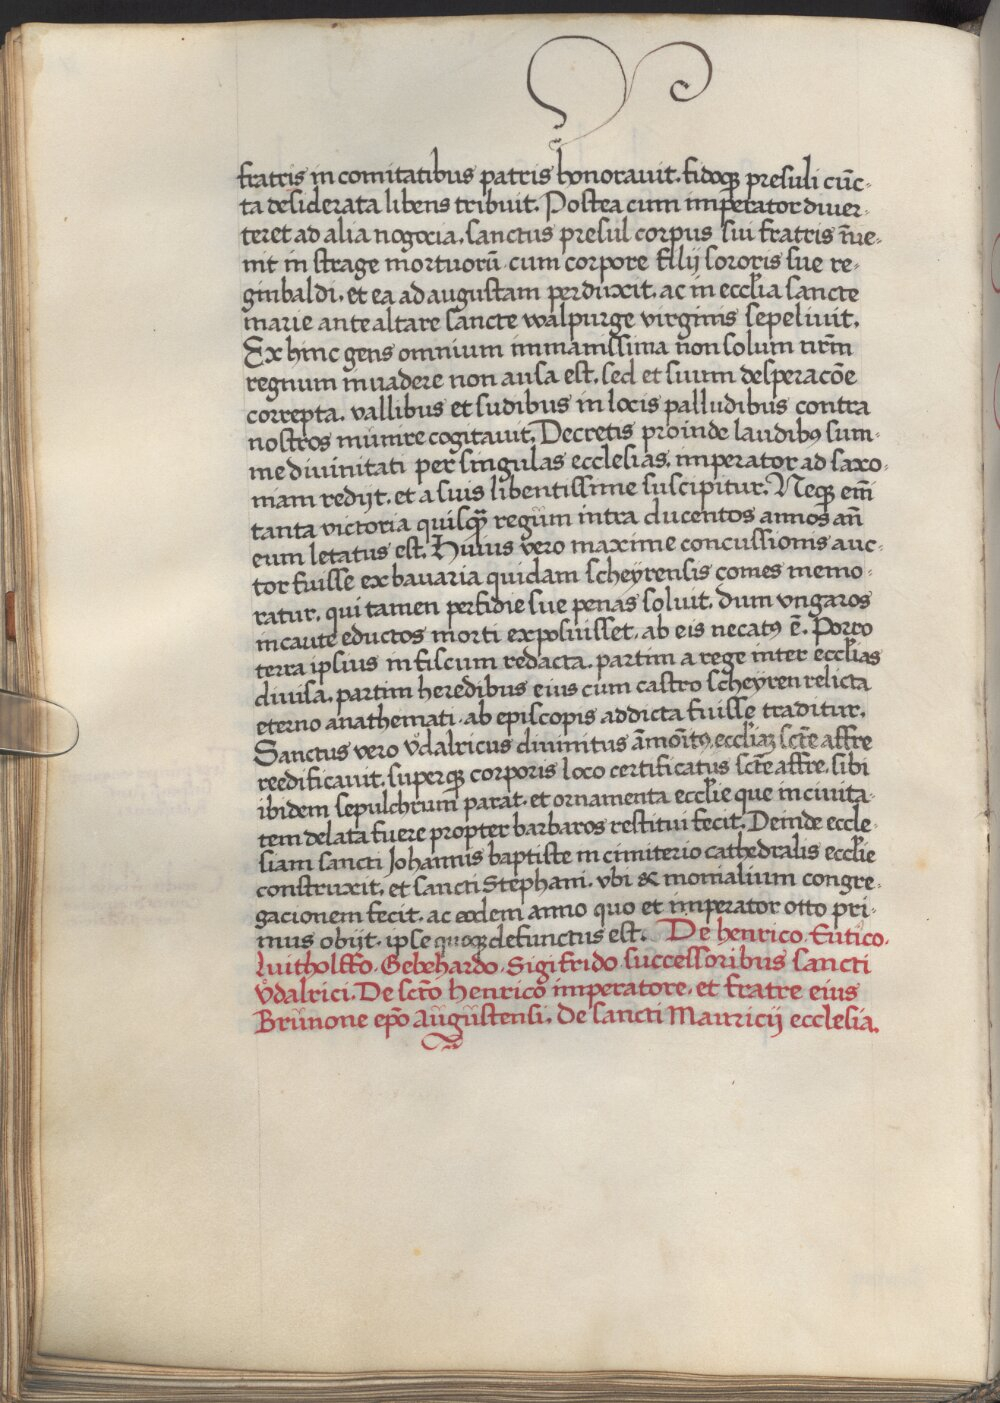 fratris in comitatibus patris honorauit. fidoqꝫ presuli cūc-
ta desiderata libens tribuit. Postea cum imperator diuer-
teret ad alia negocia, sanctus presul corpus sui fratris īue-
nit in strage mortuorū cum corpore filij sororis sue re-
ginbaldi, et ea ad augustam perduxit, ac in eccl̄ia sancte
marie ante altare sancte walpurge virginis sepeliuit.
Ex hinc gens omnium immanissima non solum nrm̄
regnum inuadere non ausa est, sed et suum desperacōe
correpta, vallibus et sudibus in locis palludibus contra
nostros munire cogitauit. Decretis proinde laudibꝰ sum-
me diuinitati per singulas ecclesias, imperator ad saxo-
niam redijt, et a suis libentissime suscipitur. Neqꝫ em̄
tanta victoria quisqꝫ̄ regum intra ducentos annos an̄
eum letatus est. Huius vero maxime concussionis auc-
tor fuisse ex bauaria quidam scheyrensis comes memo-
ratur, qui tamen perfidie sue penas soluit, dum vngaros
incaute eductos morti exposuisset, ab eis necatꝰ ē. Porro
terra ipsius in fiscum redacta, partim a rege inter eccl̄ias
diuisa, partim heredibus eius cum castro scheyren relicta
eterno anathemati ab episcopis addicta fuisse traditur.
Sanctus vero vͦdalricus diuinitus āmōitꝰ, eccl̄iaꝫ scte͞ affre
reedificauit, superqꝫ corporis loco certificatus scte͞ affre, sibi
ibidem sepulchrum parat, et ornamenta eccl̄ie que in ciuita-
tem delata fuere propter barbaros restitui fecit. Deinde eccle-
siam sancti Johannis baptiste in cimiterio cathedralis eccl̄ie
construxit, et sancti Stephani, vbi & monialium congre-
gacionem fecit, ac eodem anno quo et imperator otto pri-
mus obijt, ipse quoqꝫ defunctus est. De henrico, Eutico,
Luitholffo, Gebehardo, Sigifrido successoribus sancti
vͦdalrici. De sctō henrico imperatore, et fratre eius
Brunone ep̄o Augustensi. De sancti Mauricij ecclesia.